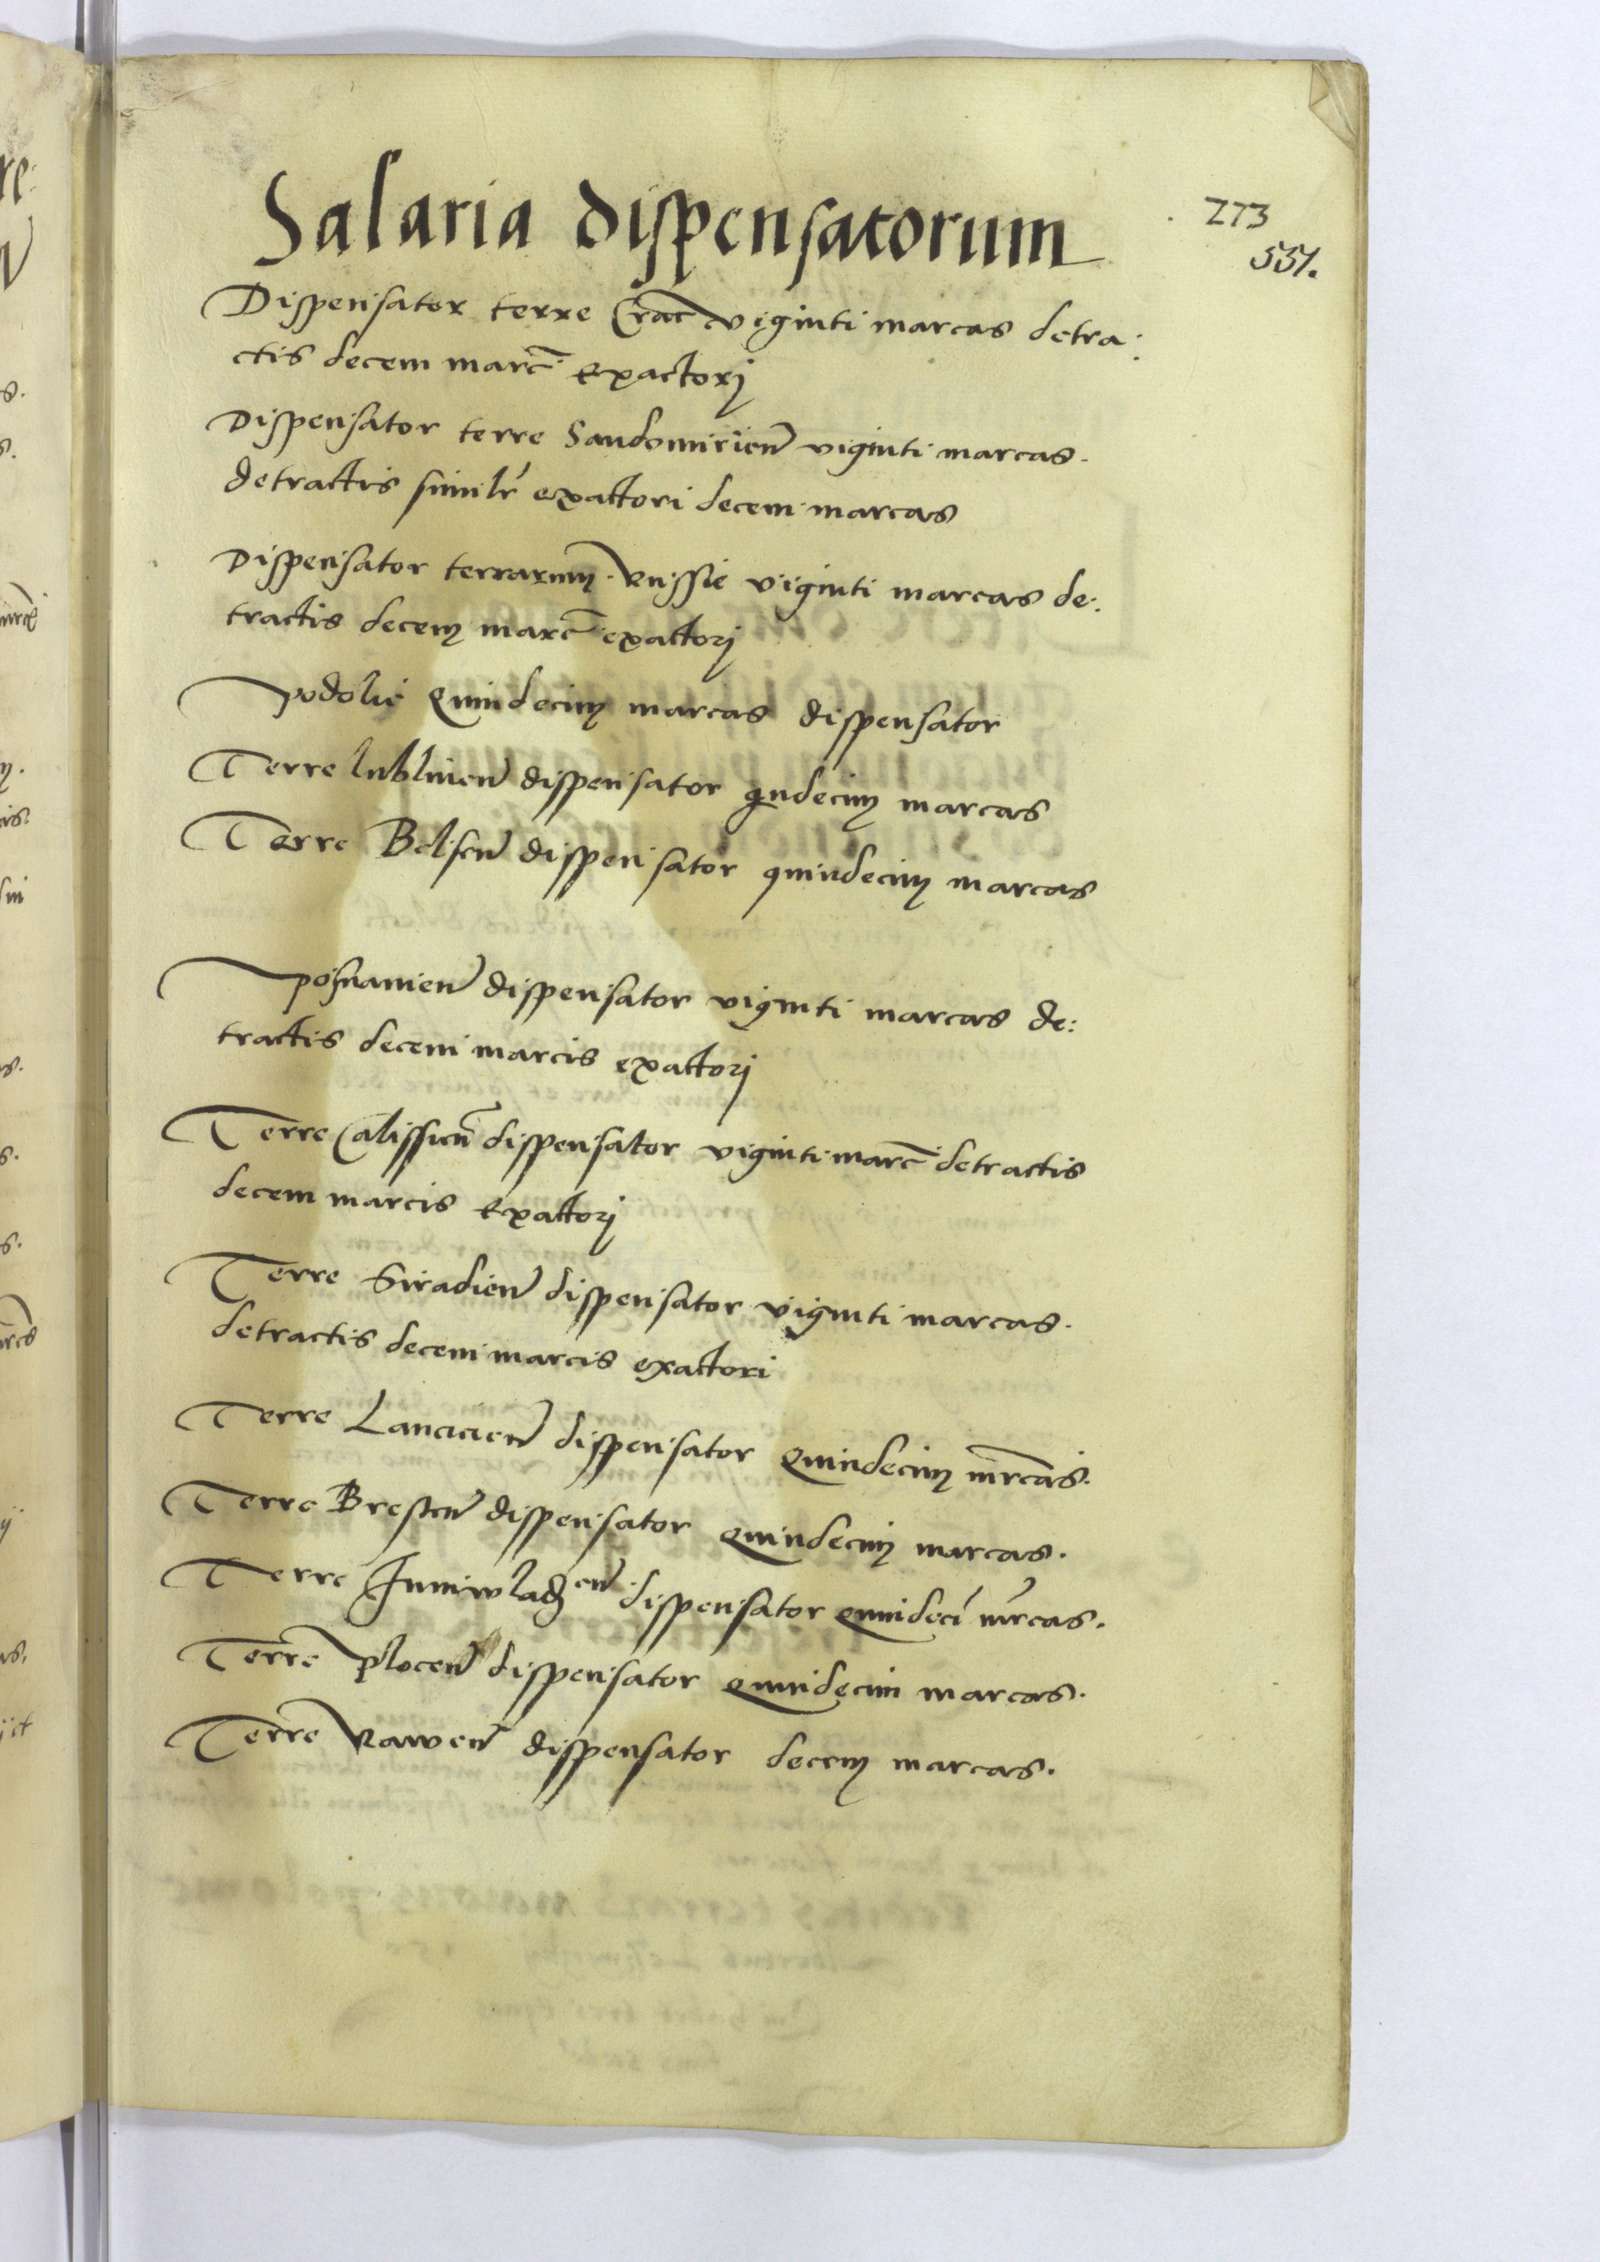 Salaria dispensatorum
273
551.
Dispensator terre Crac̄ viginti marcas detra:
ctis decem marc̄ exactorj
Dispensator terre Sandomirien̄ viginti marcas.
detractis similr̄ exactori decem marcas
Dispensator terrarum Russie viginti marcas de:
tractis decem marc̄ exactorj
podolie Quindecim marcas dispensator
Terre lublinen̄ dispensator qndecim marcas
Terre Belsen̄ dispensator quindecim marcas
posnanien̄ dispensator viginti marcas de:
tractis decem marcis exactorj
Terre Calissien̄ dispensator viginti marc̄ detractis
decem marcis exactorj
Terre Siradien̄ dispensator viginti marcas.
detractis decem marcis exactori
Terre Lancicien̄ dispensator Quindecim mrcas.
Terre Bresten̄ dispensator Quindecim marcas.
Terre Juniwladȝen̄ dispensator quindecī mrcas.
Terre plocen̄ dispensator Quindecim marcas.
Terre Rawen̄ dispensator decem marcas.